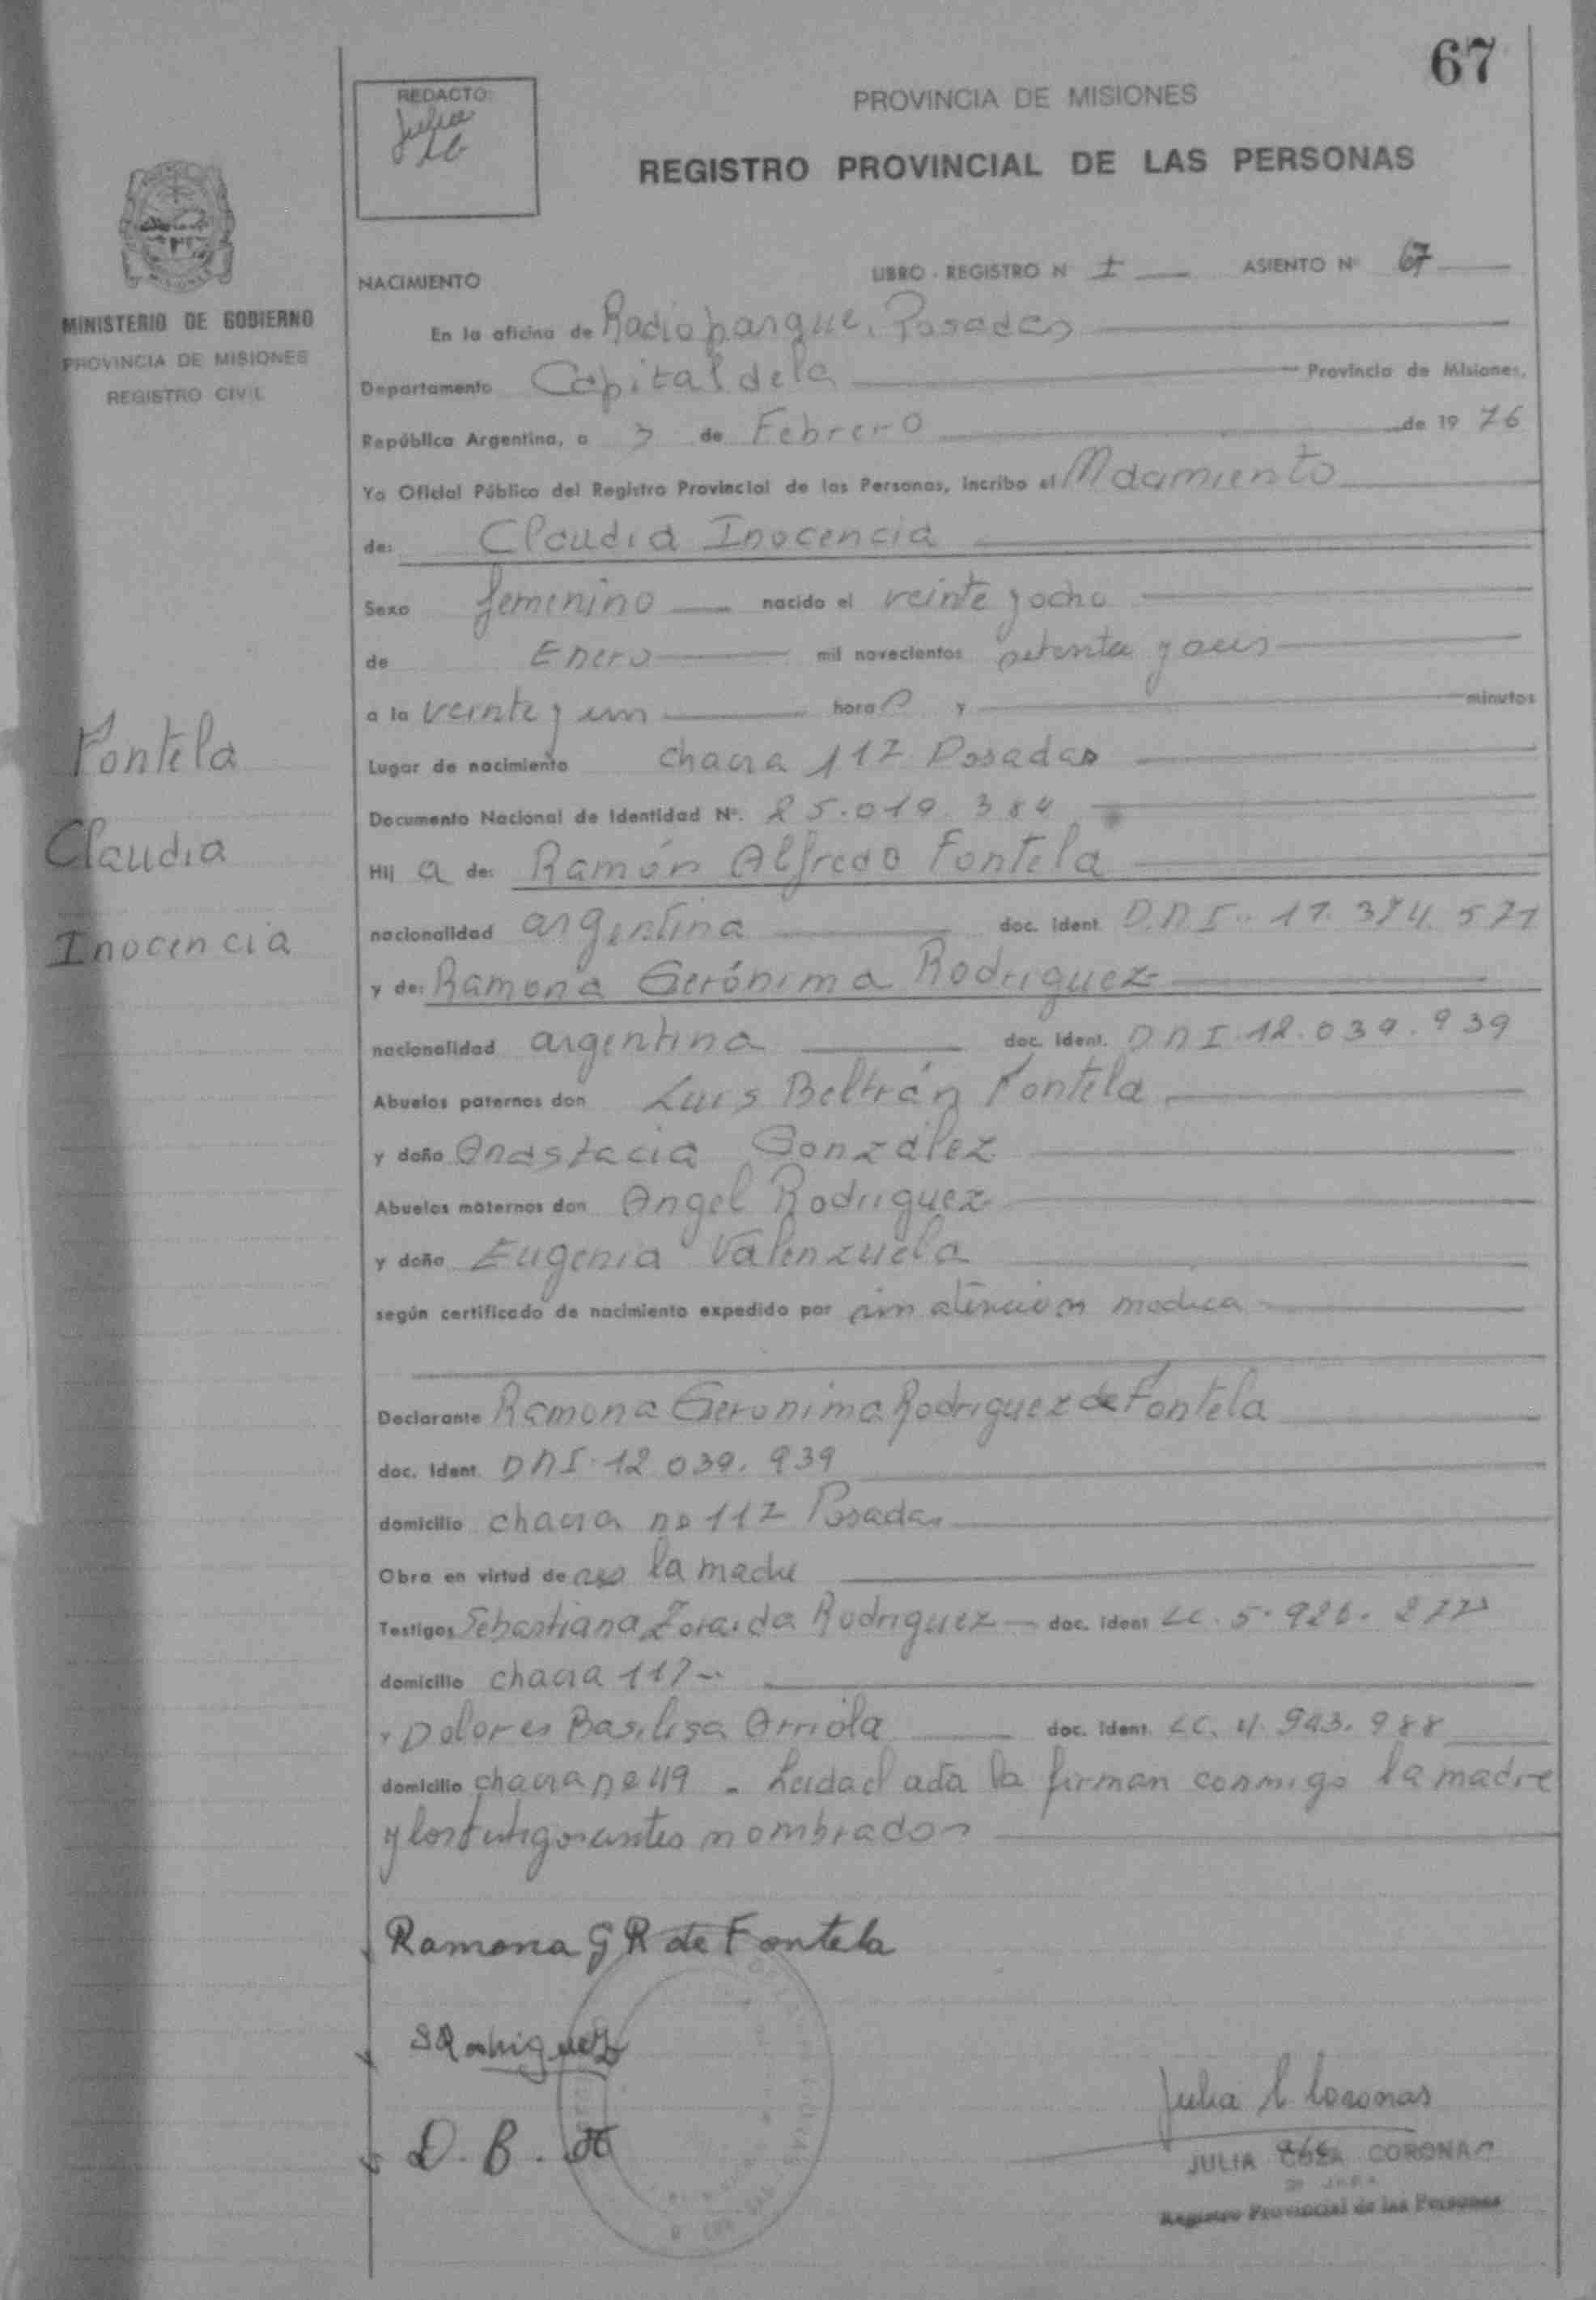 67
REDACTO:
Julia
PROVINCIA DE MISIONES
REGISTRO PROVINCIAL DE LAS PERSONAS
MINISTERIO DE GOBIERNO
PROVINCIA DE MISIONES
REGISTRO CIVIL
NACIMIENTO LIBRO - REGISTRO N I ASIENTO Nº 67
En la oficina de Radioparque, Posadas
Departamento Capital de la Provincia de Misiones,
República Argentina, a 3 de Febrero de 19 76
Yo Oficial Público del Registro Provincial de las Personas, incribo el
de: Claudia Inocencia
Sexo femenino nacido el veinte y ocho
de Enero mil novecientos setenta y seis
a la veinte y un hora s y minutos
Lugar de nacimiento chacra 117 Posadas
Documento Nacional de Identidad Nº. 25.019.384
Hij a de: Ramón Alfredo Fontela
nacionalidad argentina doc. ident. D.N.I.
y de: Ramona Gerónima Rodriguez
nacionalidad argentina doc. ident. DNI.12.039.939
Abuelos paternos don Luis Beltrán Fontela
y doña Anastacia González
Abuelos maternos don Angel Rodriguez
y doña Eugenia Valenzuela
según certificado de nacimiento expedido por sin atencion medica
Declarante Ramona Geronima Rodriguez de Fontela
doc. ident. DNI.12 039.939
domicilio chacra nº 117 Posadas
Obra en virtud de ser la madre
Testigos Sebastiana Zoraida Rodriguez doc. ident LC. 5.926.
domicilio chacra 117
y Dolores Basilisa Arriola doc. ident. LC. 4.943.988
domicilio chacra nº 49 - Leida el acta la firman conmigo la madre
y los testigos antes nombrados
Fontela
Claudia
Inocencia
Ramona G R de Fontela
S Rodriguez
D. B. A
Julia Coronas
JULIA CORONAS
Registro Provincial de las Personas